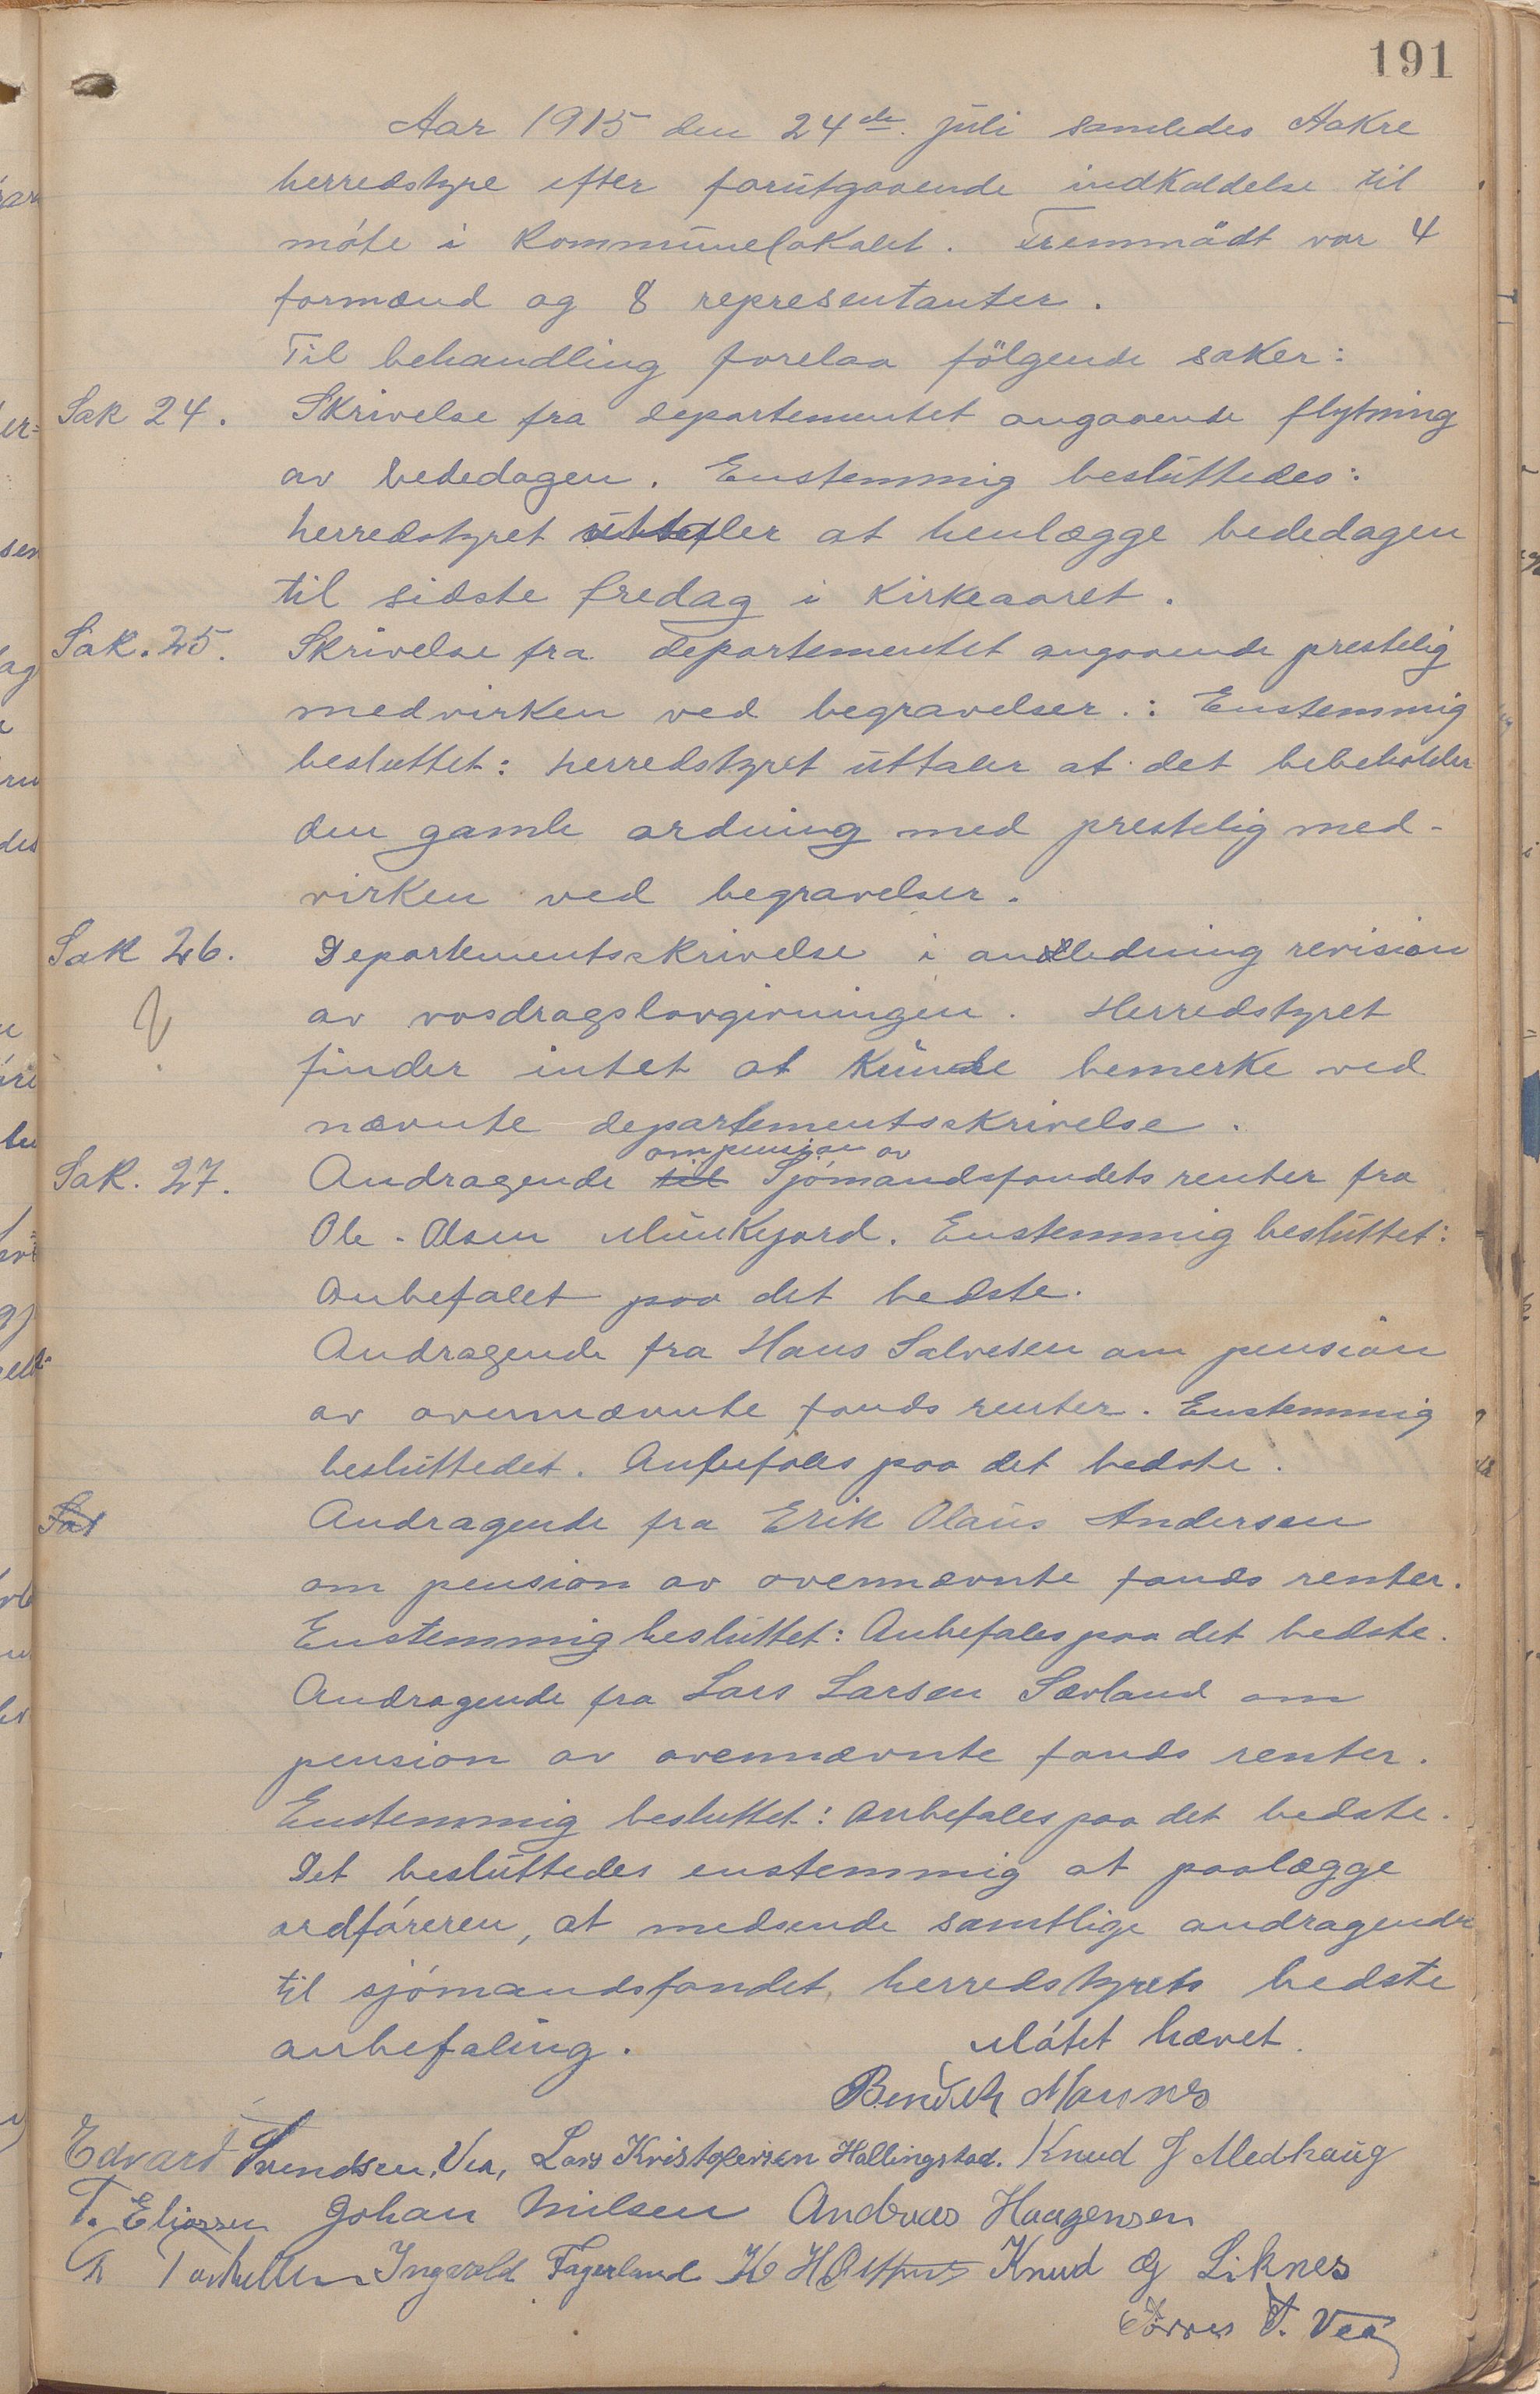 191
Aar 1915 den 24de juli samledes Aakre
herredstyre efter forutgaaende indkaldelse til
móte i Kommunelokalet. Fremmödt var 4
formænd og 8 representanter.
Til behandling forelaa fölgende saker:
Sak 24. Skrivelse fra departementet angaaende flytning
av bededagen. Enstemmig besluttedes:
herredstyret uttaler at henlægge bededagen
til sidste fredag i Kirkeaaret.
Sak. 25. Skrivelse fra departementet angaaende prestelig
medvirken ved begravelser.: Enstemmig
besluttet: herredstyret uttaler at det bebeholder
den gamle ordning med prestelig med-
virken ved begravelser.
Sak 26. Departementsskrivelse i anledning revision
av vasdragslovgivningen. Herredstyret
finder intet at kunde bemerke ved
nævnte departementsskrivelse.
om pension av
Sak. 27. Andragende til Sjómandsfondets renter fra
Ole Olsen Munkejord. Enstemmig besluttet:
Anbefalet paa det bedste.
Andragende fra Hans Salvesen om pension
av ovennævnte fonds renter. Enstemmig
besluttedet. Anbefales paa det bedste.
Sak Andragende fra Erik Olaus Andersen
om pension av ovennævnte fonds renter.
Enstemmig besluttet: Anbefales paa det bedste.
Andragende fra Lars Larsen Sævland om
pension av ovennævnte fonds renter.
Enstemmig besluttet: Anbefales paa det bedste.
Det besluttedes enstemmig at paalægge
ordfóreren, at medsende samtlige andragende
til sjómandsfondet herredstyrets bedste
anbefaling. Mótet hævet.
Bendik Mannes
Edvard Svendsen, Vea, Lars Kristofersen Hallingstad. Knud J Medhaug
T. Eliassen Johan Nilsen Andreas Haagensen
Ingvald Fagerland K H Knud G Liknes
Torres T. Vea